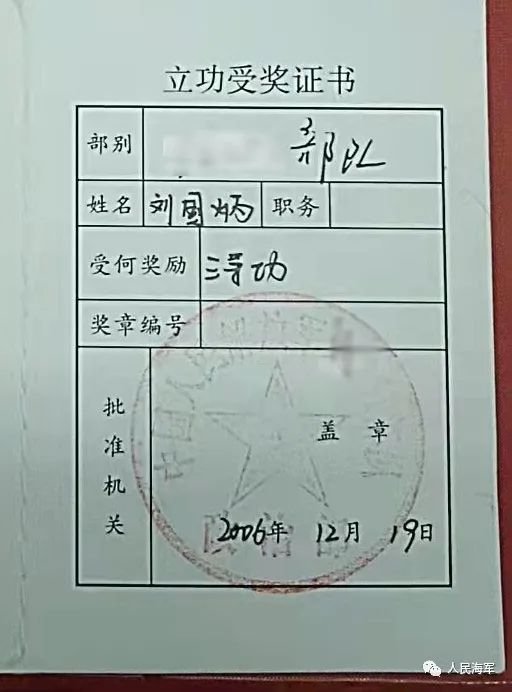 立功受奖证书
部别 部队
姓名 刘国炳 职务
受何奖励 三等功
奖章编号
批准机关
盖章
2006年 12月 19日
人民海军